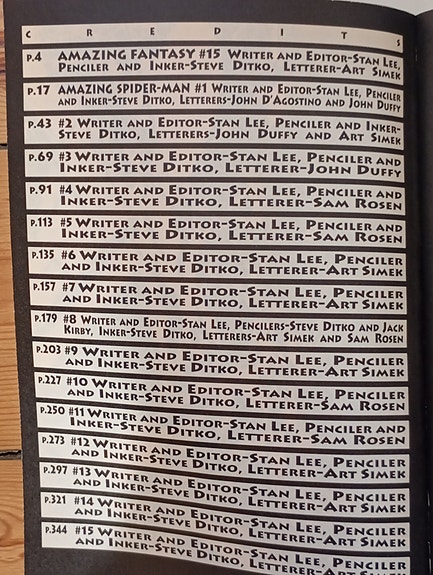 CREDITS
P.4 AMAZING FANTASY #15 WRITER AND EDITOR-STAN LEE,
PENCILER AND INKER-STEVE DITKO, LETTERER-ART SIMEK
P.17 AMAZING SPIDER-MAN #1 WRITER AND EDITOR-STAN LEE, PENCILER
AND INKER-STEVE DITKO, LETTERERS-JOHN D'AGOSTINO AND JOHN DUFFY
P.43 #2 WRITER AND EDITOR-STAN LEE, PENCILER AND INKER-
STEVE DITKO, LETTERERS-JOHN DUFFY AND ART SIMEK
P.69 #3 WRITER AND EDITOR-STAN LEE, PENCILER AND
INKER-STEVE DITKO, LETTERER-JOHN DUFFY
P.91 #4 WRITER AND EDITOR-STAN LEE, PENCILER AND
INKER-STEVE DITKO, LETTERER-SAM ROSEN
P.113 #5 WRITER AND EDITOR-STAN LEE, PENCILER AND
INKER-STEVE DITKO, LETTERER-SAM ROSEN
P.135 #6 WRITER AND EDITOR-STAN LEE, PENCILER
AND INKER-STEVE DITKO, LETTERER-ART SIMEK
P.157 #7 WRITER AND EDITOR-STAN LEE, PENCILER
AND INKER-STEVE DITKO, LETTERER-ART SIMEK
P.179 #8 WRITER AND EDITOR-STAN LEE, PENCILERS-STEVE DITKO AND JACK
KIRBY, INKER-STEVE DITKO, LETTERERS-ART SIMEK AND SAM ROSEN
P.203 #9 WRITER AND EDITOR-STAN LEE, PENCILER
AND INKER-STEVE DITKO, LETTERER-ART SIMEK
P.227 #10 WRITER AND EDITOR-STAN LEE, PENCILER
AND INKER-STEVE DITKO, LETTERER-SAM ROSEN
P.250 #11 WRITER AND EDITOR-STAN LEE, PENCILER AND
INKER-STEVE DITKO, LETTERER-SAM ROSEN
P.273 #12 WRITER AND EDITOR-STAN LEE, PENCILER
AND INKER-STEVE DITKO, LETTERER-ART SIMEK
P.297 #13 WRITER AND EDITOR-STAN LEE, PENCILER
AND INKER-STEVE DITKO, LETTERER-ART SIMEK
P.321 #14 WRITER AND EDITOR-STAN LEE, PENCILER
AND INKER-STEVE DITKO, LETTERER-ART SIMEK
P.344 #15 WRITER AND EDITOR-STAN LEE, PENCILER
AND INKER-STEVE DITKO, LETTERER-ART SIMEK